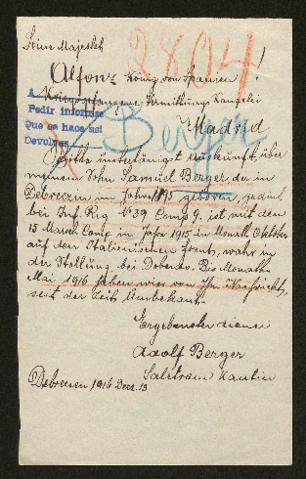 Seine Majestät
2804
Alfonz König von Spanien!
A Kriegsgefangene Vermittlungs Kanzlei
Pedir informes
Que se hace asi
Devolver
Madrid
Berger
Bitte unterfertigt Auskunft über
meinen Sohn Samuel Berger der in
Debreczin im Jahre 1895 geboren, gedient
bei Inf. Reg No 39 Comp 9. ist mit den
15 Marsch Comp im Jahre 1915 in Monath October
auf den Italienischen Front, wahr in
der Stellung bei Doberdo. Bis Monathe
Mai 1916 haben wir von ihn Nachricht,
seit der Zeit Unbekant.
Adolf Berger
Debreczen 1916 Dec. 13